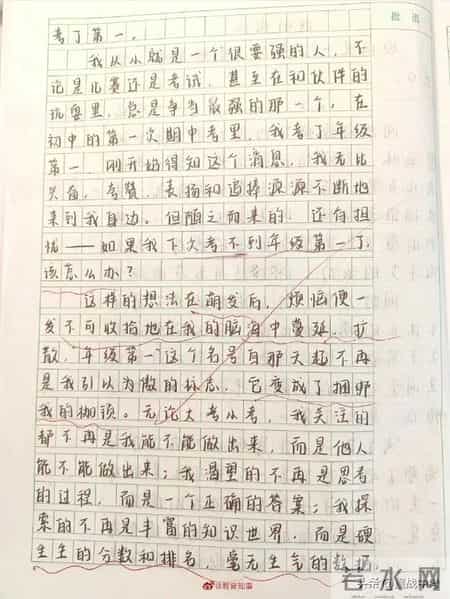 批注
考了第一。
我从小就是一个很要强的人，不
论是比赛还是考试，甚至在和伙伴的
玩耍里，总是争当最强的那一个。在
初中的第一次期中考里，我考了年级
第一，刚开始得知这个消息，我无比
兴奋，夸赞、表扬和追捧源源不断地
来到我身边。但随之而来的，还有担
忧——如果我下次考不到年级第一了，
该怎么办？
这样的想法在萌发后，烦恼便一
发不可收拾地在我的脑海中蔓延、扩
散，年级第一这个名号自那天起不再
是我引以为傲的标志，它变成了捆绑
我的枷锁。无论大考小考，我关注的
都不再是我能不能做出来，而是他人
能不能做出来；我渴望的不再是思考
的过程，而是一个正确的答案；我探
索的不再是丰富的知识世界，而是硬
生生的分数和排名，毫无生气的数据